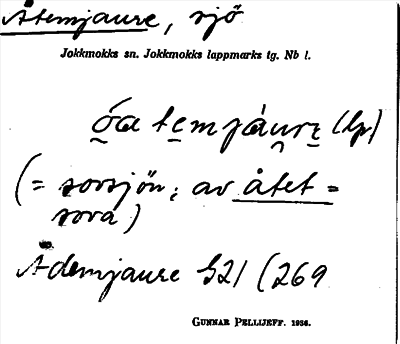 Åtemjaure, sjö
Jokkmokks sn. Jokkmokks lappmarks tg. Nb l.
ó̱a te̱mjáu̯re̱ (lp)
(= sorsjön; av åtet =
sora)
Ådemjaure G21 (269
GUNNAR PELLIJEFF. 1936.